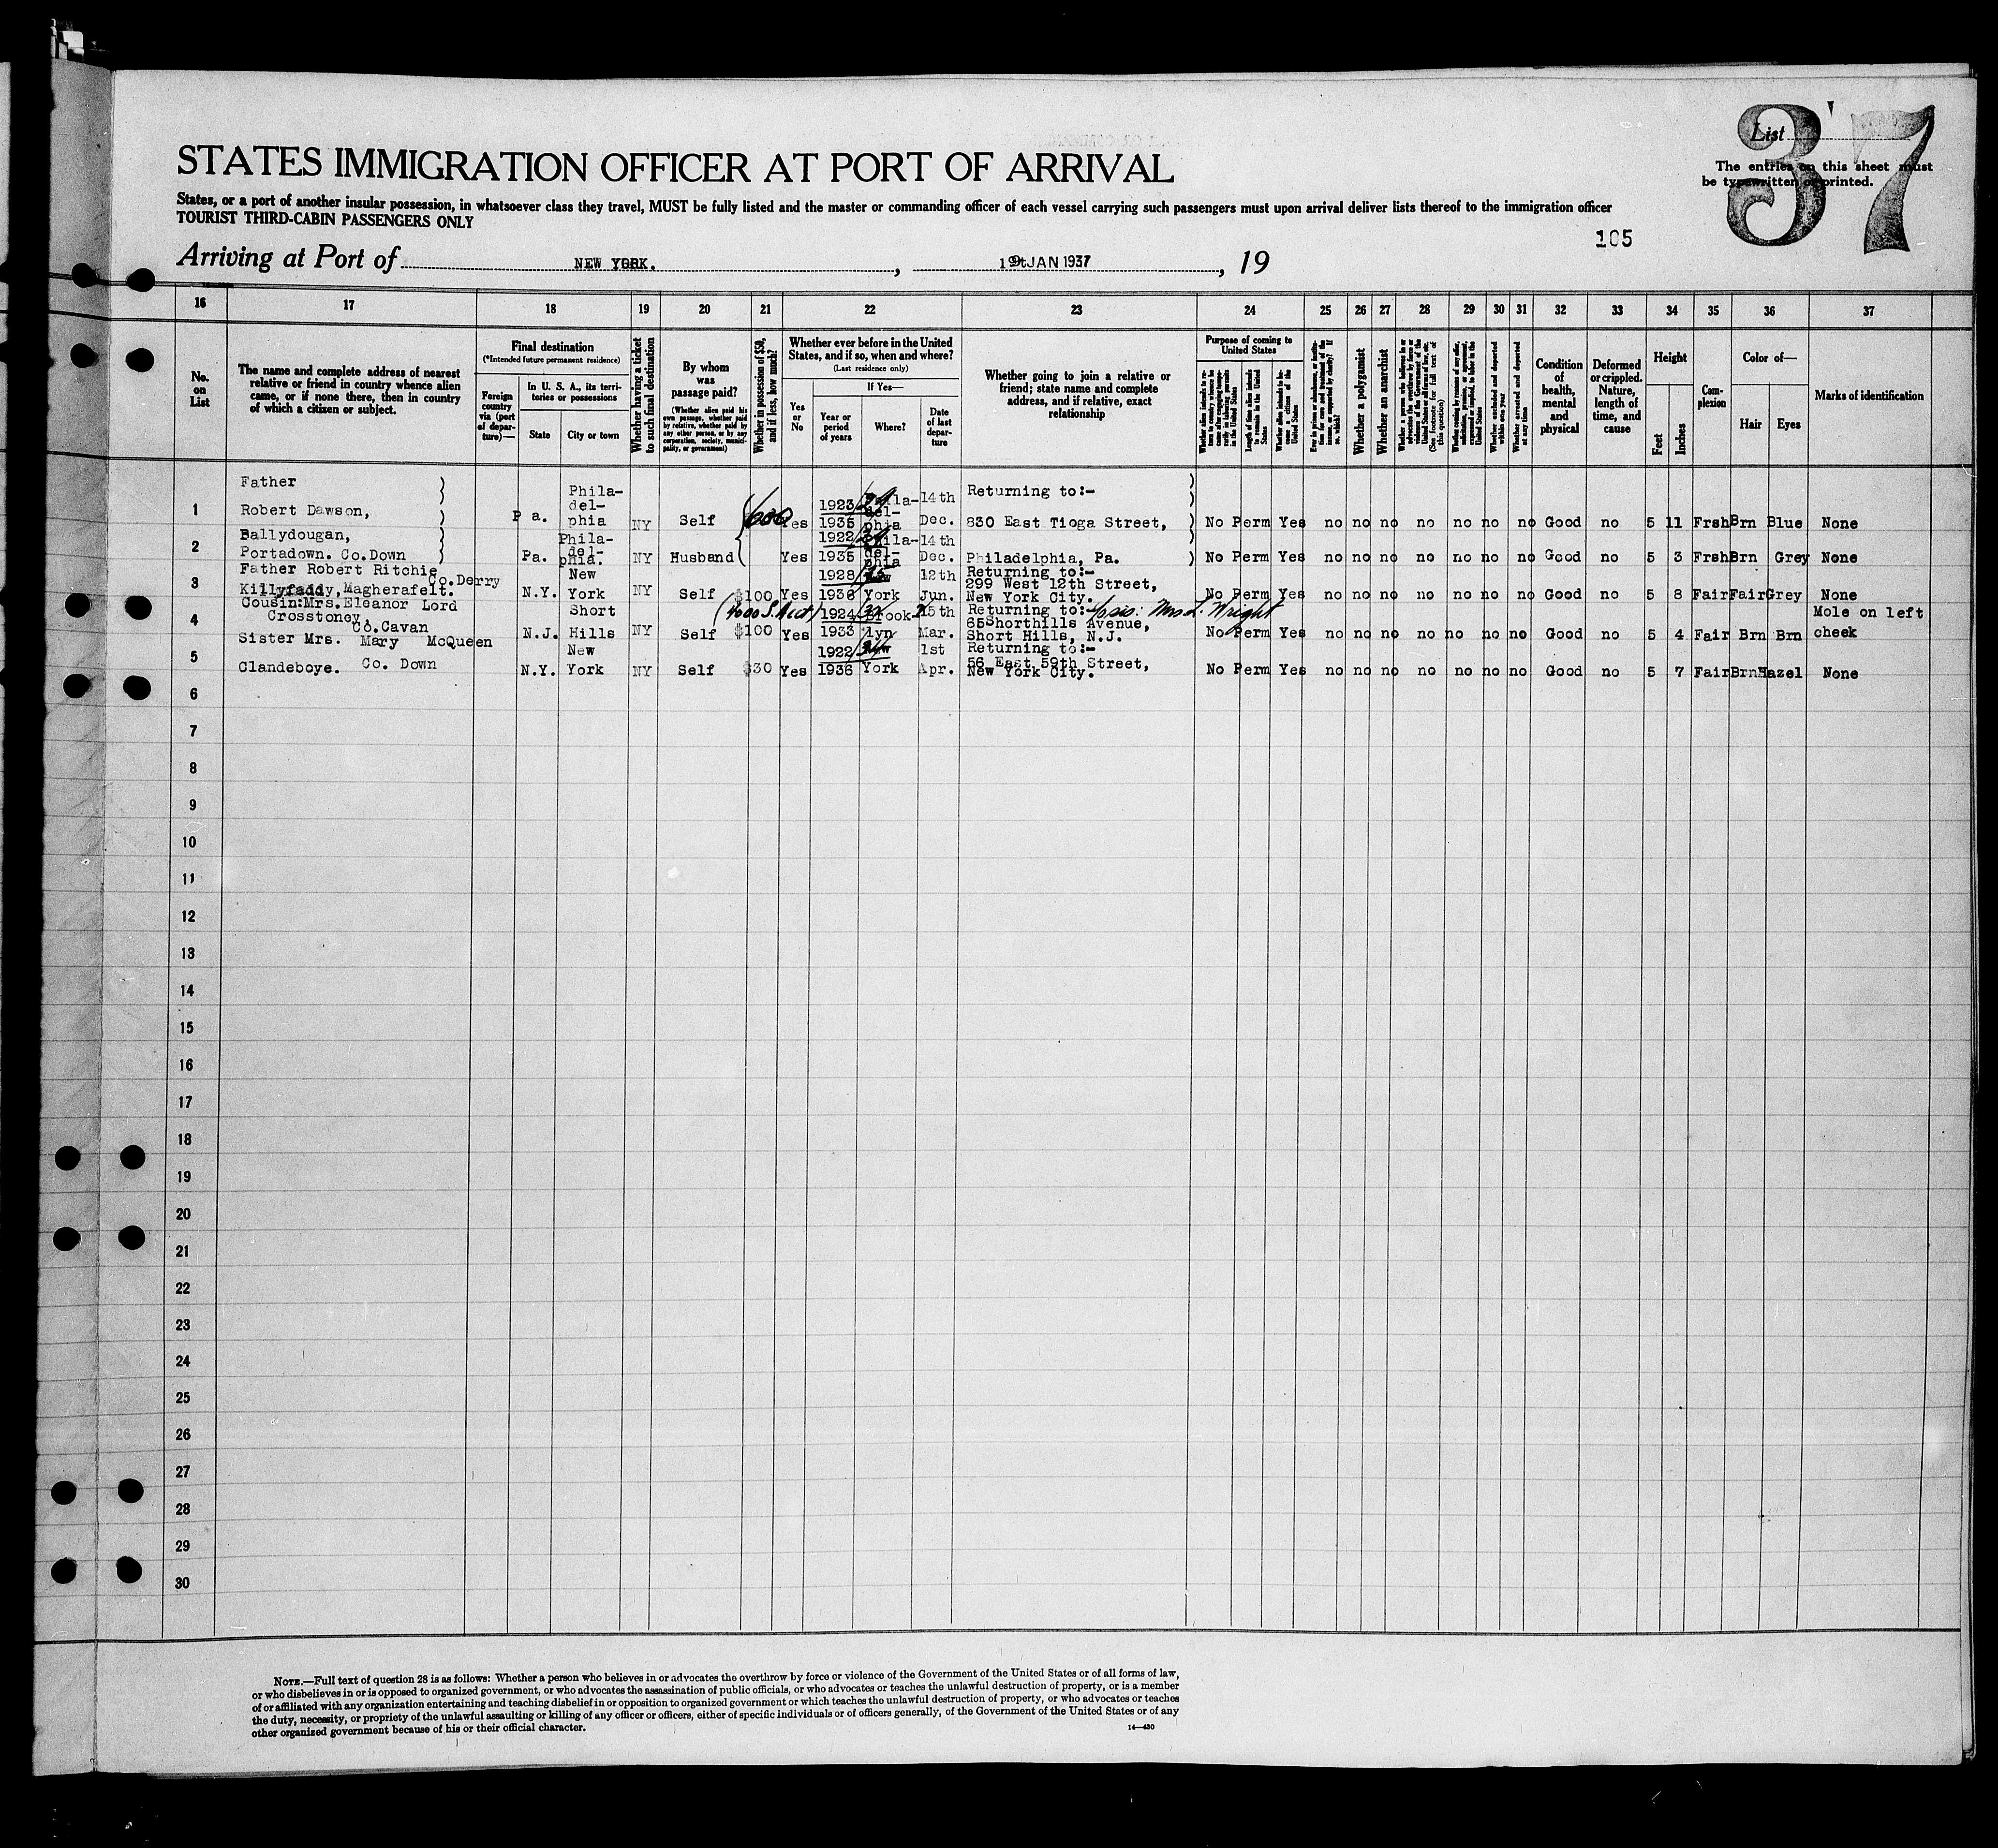 37
List
The entries on this sheet must
be typewritten or printed.
STATES IMMIGRATION OFFICER AT PORT OF ARRIVAL
States, or a port of another insular possession, in whatsoever class they travel, MUST be fully listed and the master or commanding officer of each vessel carrying such passengers must upon arrival deliver lists thereof to the immigration officer
TOURIST THIRD-CABIN PASSENGERS ONLY
105
Arriving at Port of NEW YORK. , JAN 1937 , 19
16 17 18 19 20 21 22 23 24 25 26 27 28 29 30 31 32 33 34 35 36 37
No. on List
The name and complete address of nearest relative or friend in country whence alien came, or if none there, then in country of which a citizen or subject.
Final destination
(*Intended future permanent residence)
Foreign country via (port of departure)—
In U. S. A., its territories or possessions
State
City or town
Whether having a ticket to such final destination
By whom was passage paid?
(Whether alien paid his own passage, whether paid by relative, whether paid by any other person, or by any corporation, society, municipality, or government)
Whether in possession of $50, and if less, how much?
Whether ever before in the United States, and if so, when and where?
(Last residence only)
Yes or No
If Yes—
Year or period of years
Where?
Date of last departure
Whether going to join a relative or friend; state name and complete address, and if relative, exact relationship
Purpose of coming to United States
Length of time alien intends to remain in the United States
Whether alien intends to become a citizen of the United States
Whether a polygamist
Whether an anarchist
Whether excluded and deported within one year
Whether arrested and deported at any time
Condition of health, mental and physical
Deformed or crippled. Nature, length of time, and cause
Height
Feet
Inches
Complexion
Color of—
Hair
Eyes
Marks of identification
1 Father Robert Dawson, Pa. Philadelphia NY Self 600 Yes 1923 1935 Philadelphia 14th Dec. Returning to:- 830 East Tioga Street, No Perm Yes no no no no no no no Good no 5 11 Frsh Brn Blue None
2 Ballydougan, Portadown. Co.Down Pa. Philadelphia. NY Husband Yes 1922 1935 Philadelphia 14th Dec. Philadelphia, Pa. No Perm Yes no no no no no no no Good no 5 3 Frsh Brn Grey None
3 Father Robert Ritchie Killyfaddy, Magherafelt. Co.Derry N.Y. New York NY Self $100 Yes 1928 1936 New York 12th Jun. Returning to:- 299 West 12th Street, New York City. No Perm Yes no no no no no no no Good no 5 8 Fair Fair Grey None
4 Cousin:Mrs.Eleanor Lord Crosstoney, Co.Cavan N.J. Short Hills NY Self $100 Yes 1924 1933 Brooklyn 15th Mar. Returning to:- Mrs L. Wright 65 Shorthills Avenue, Short Hills, N.J. No Perm Yes no no no no no no no Good no 5 4 Fair Brn Brn Mole on left cheek
5 Sister Mrs. Mary McQueen Clandeboye. Co. Down N.Y. New York NY Self $30 Yes 1922 1936 New York 1st Apr. Returning to:- 56 East 59th Street, New York City. No Perm Yes no no no no no no no Good no 5 7 Fair Brn Hazel None
6
7
8
9
10
11
12
13
14
15
16
17
18
19
20
21
22
23
24
25
26
27
28
29
30
NOTE.—Full text of question 28 is as follows: Whether a person who believes in or advocates the overthrow by force or violence of the Government of the United States or of all forms of law,
or who disbelieves in or is opposed to organized government, or who advocates the assassination of public officials, or who advocates or teaches the unlawful destruction of property, or is a member
of or affiliated with any organization entertaining and teaching disbelief in or opposition to organized government or which teaches the unlawful destruction of property, or who advocates or teaches
the duty, necessity, or propriety of the unlawful assaulting or killing of any officer or officers, either of specific individuals or of officers generally, of the Government of the United States or of any
other organized government because of his or their official character.
14—430